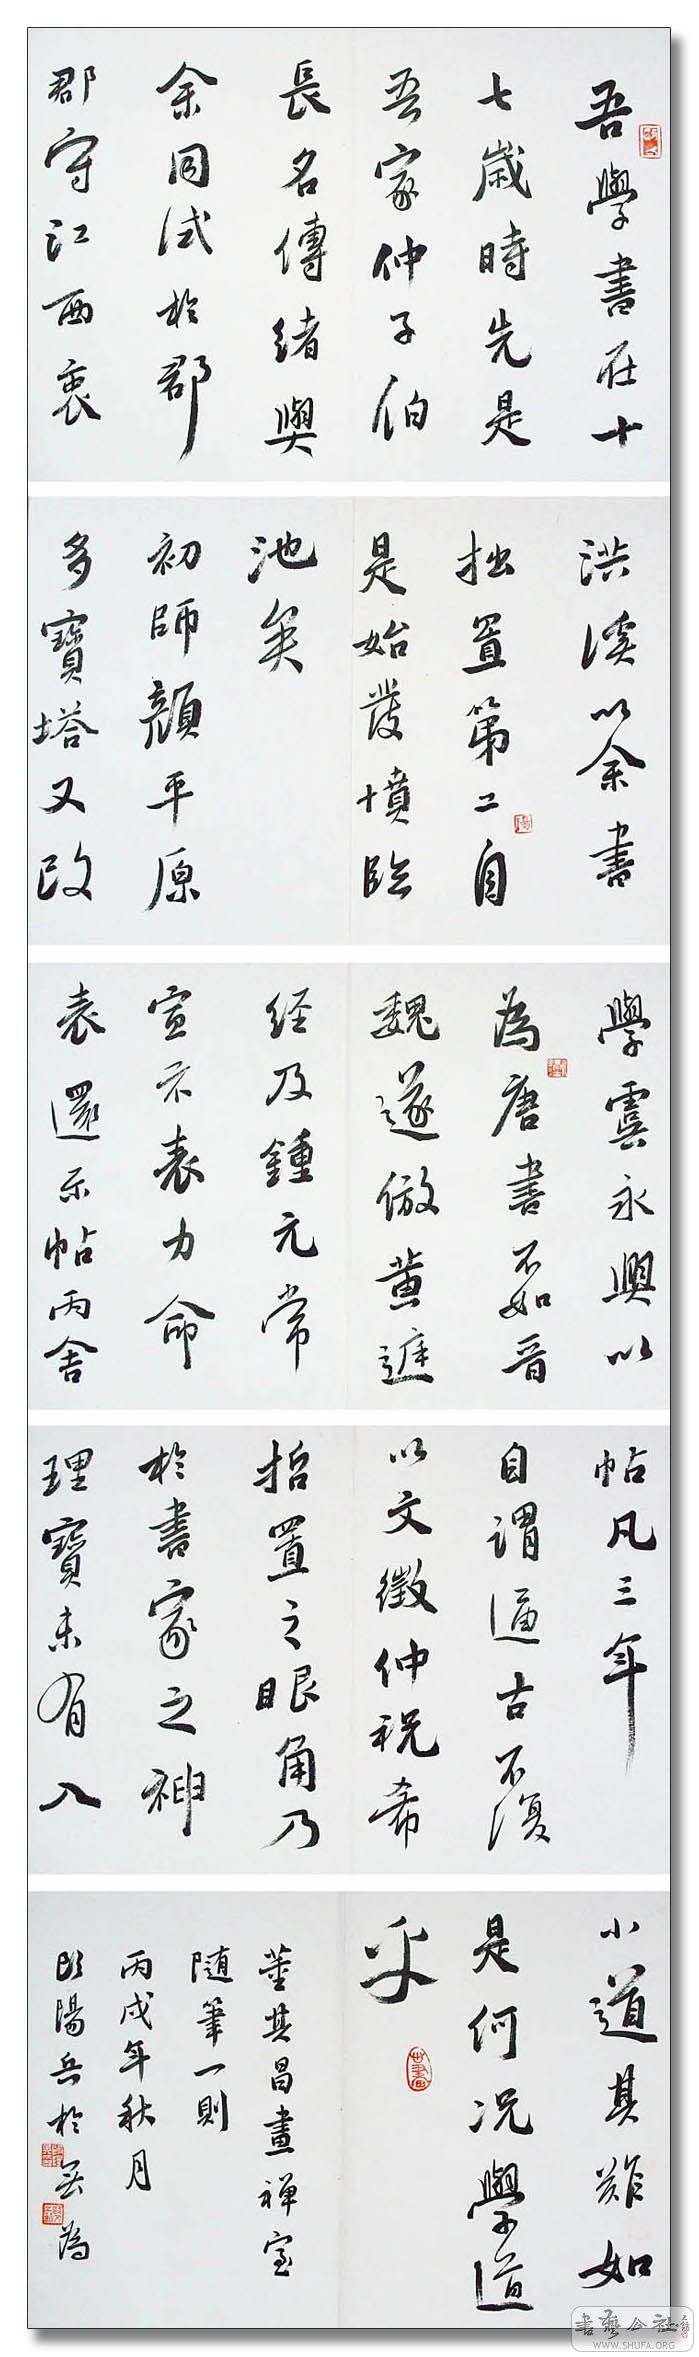 吾學書在十
七歲時先是
吾家仲子伯
長名傳緒與
余同試於郡
郡守江西衷
洪溪以余書
拙置第二自
是始發憤臨
池矣
初師顏平原
多寶塔又改
學虞永興以
為唐書不如晉
魏遂倣黃庭
经及鍾元常
宣示表力命
表還示帖丙舍
帖凡三年
自謂逼古不復
以文徵仲祝希
哲置之眼角乃
於書家之神
理寶未有入
小道其難如
是何況學道
乎
董其昌畫禪室
隨筆一則
丙戌年秋月
欧陽兵於無為
書藝公社
WWW.SHUFA.ORG